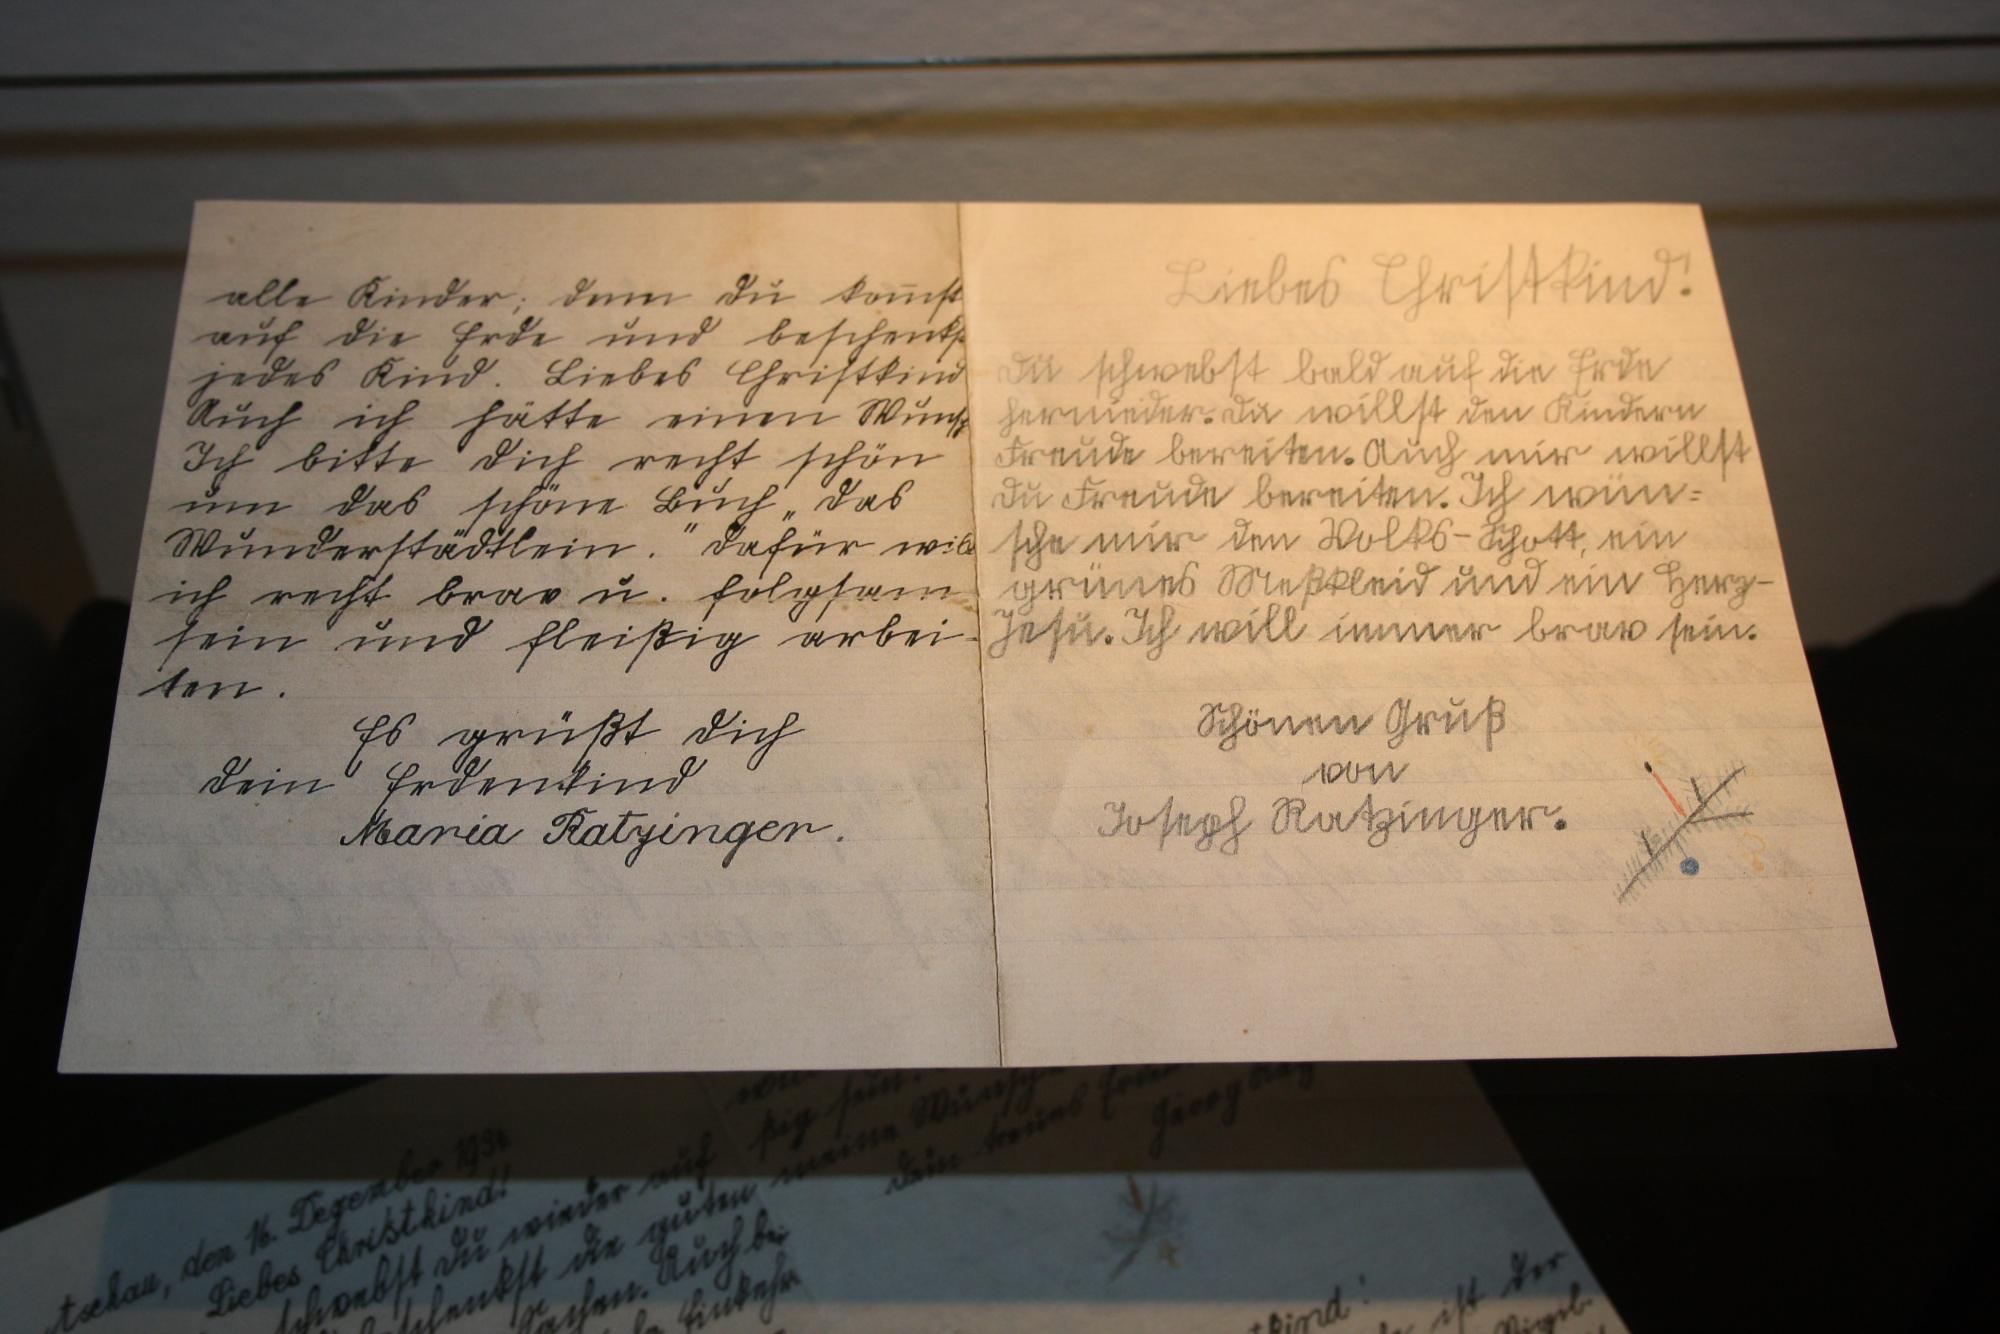 alle Kinder; denn du kom̅st
auf die Erde und beschenkst
jedes Kind. Liebes Christkind
Auch ich hätte einen Wunsch
Ich bitte dich recht schön
um das schöne Buch „das
Wunderstädtlein." Dafür will
ich recht brav u. folgsam
sein und fleißig arbei-
ten.
Es grüßt dich
dein Erdenkind
Maria Ratzinger.
Liebes Christkind!
Du schwebst bald auf die Erde
hernieder. Du willst den Kindern
Freude bereiten. Auch mir willst
du Freude bereiten. Ich wün=
sche mir den Volks-Schott, ein
grünes Meßkleid und ein Herz-
Jesu. Ich will immer brav sein.
Schönen Gruß
von
Joseph Ratzinger.
ßig sein.
meine Wünsche
dein treues
Georg
tschau, den 16. Dezember 1934
Liebes Christkind!
schwebst du wieder auf
beschenkst die guten
Sachen. Auch bei
Einkehr
kind!
ist der